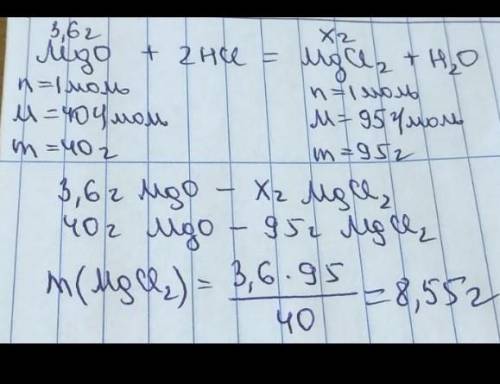 3,6г x г
MgO + 2HCl = MgCl₂ + H₂O
n = 1 моль n = 1 моль
M = 40 г/моль M = 95 г/моль
m = 40 г m = 95 г
3,6 г MgO – x г MgCl₂
40 г MgO – 95 г MgCl₂
m(MgCl₂) = 3,6 · 95 / 40 = 8,55 г